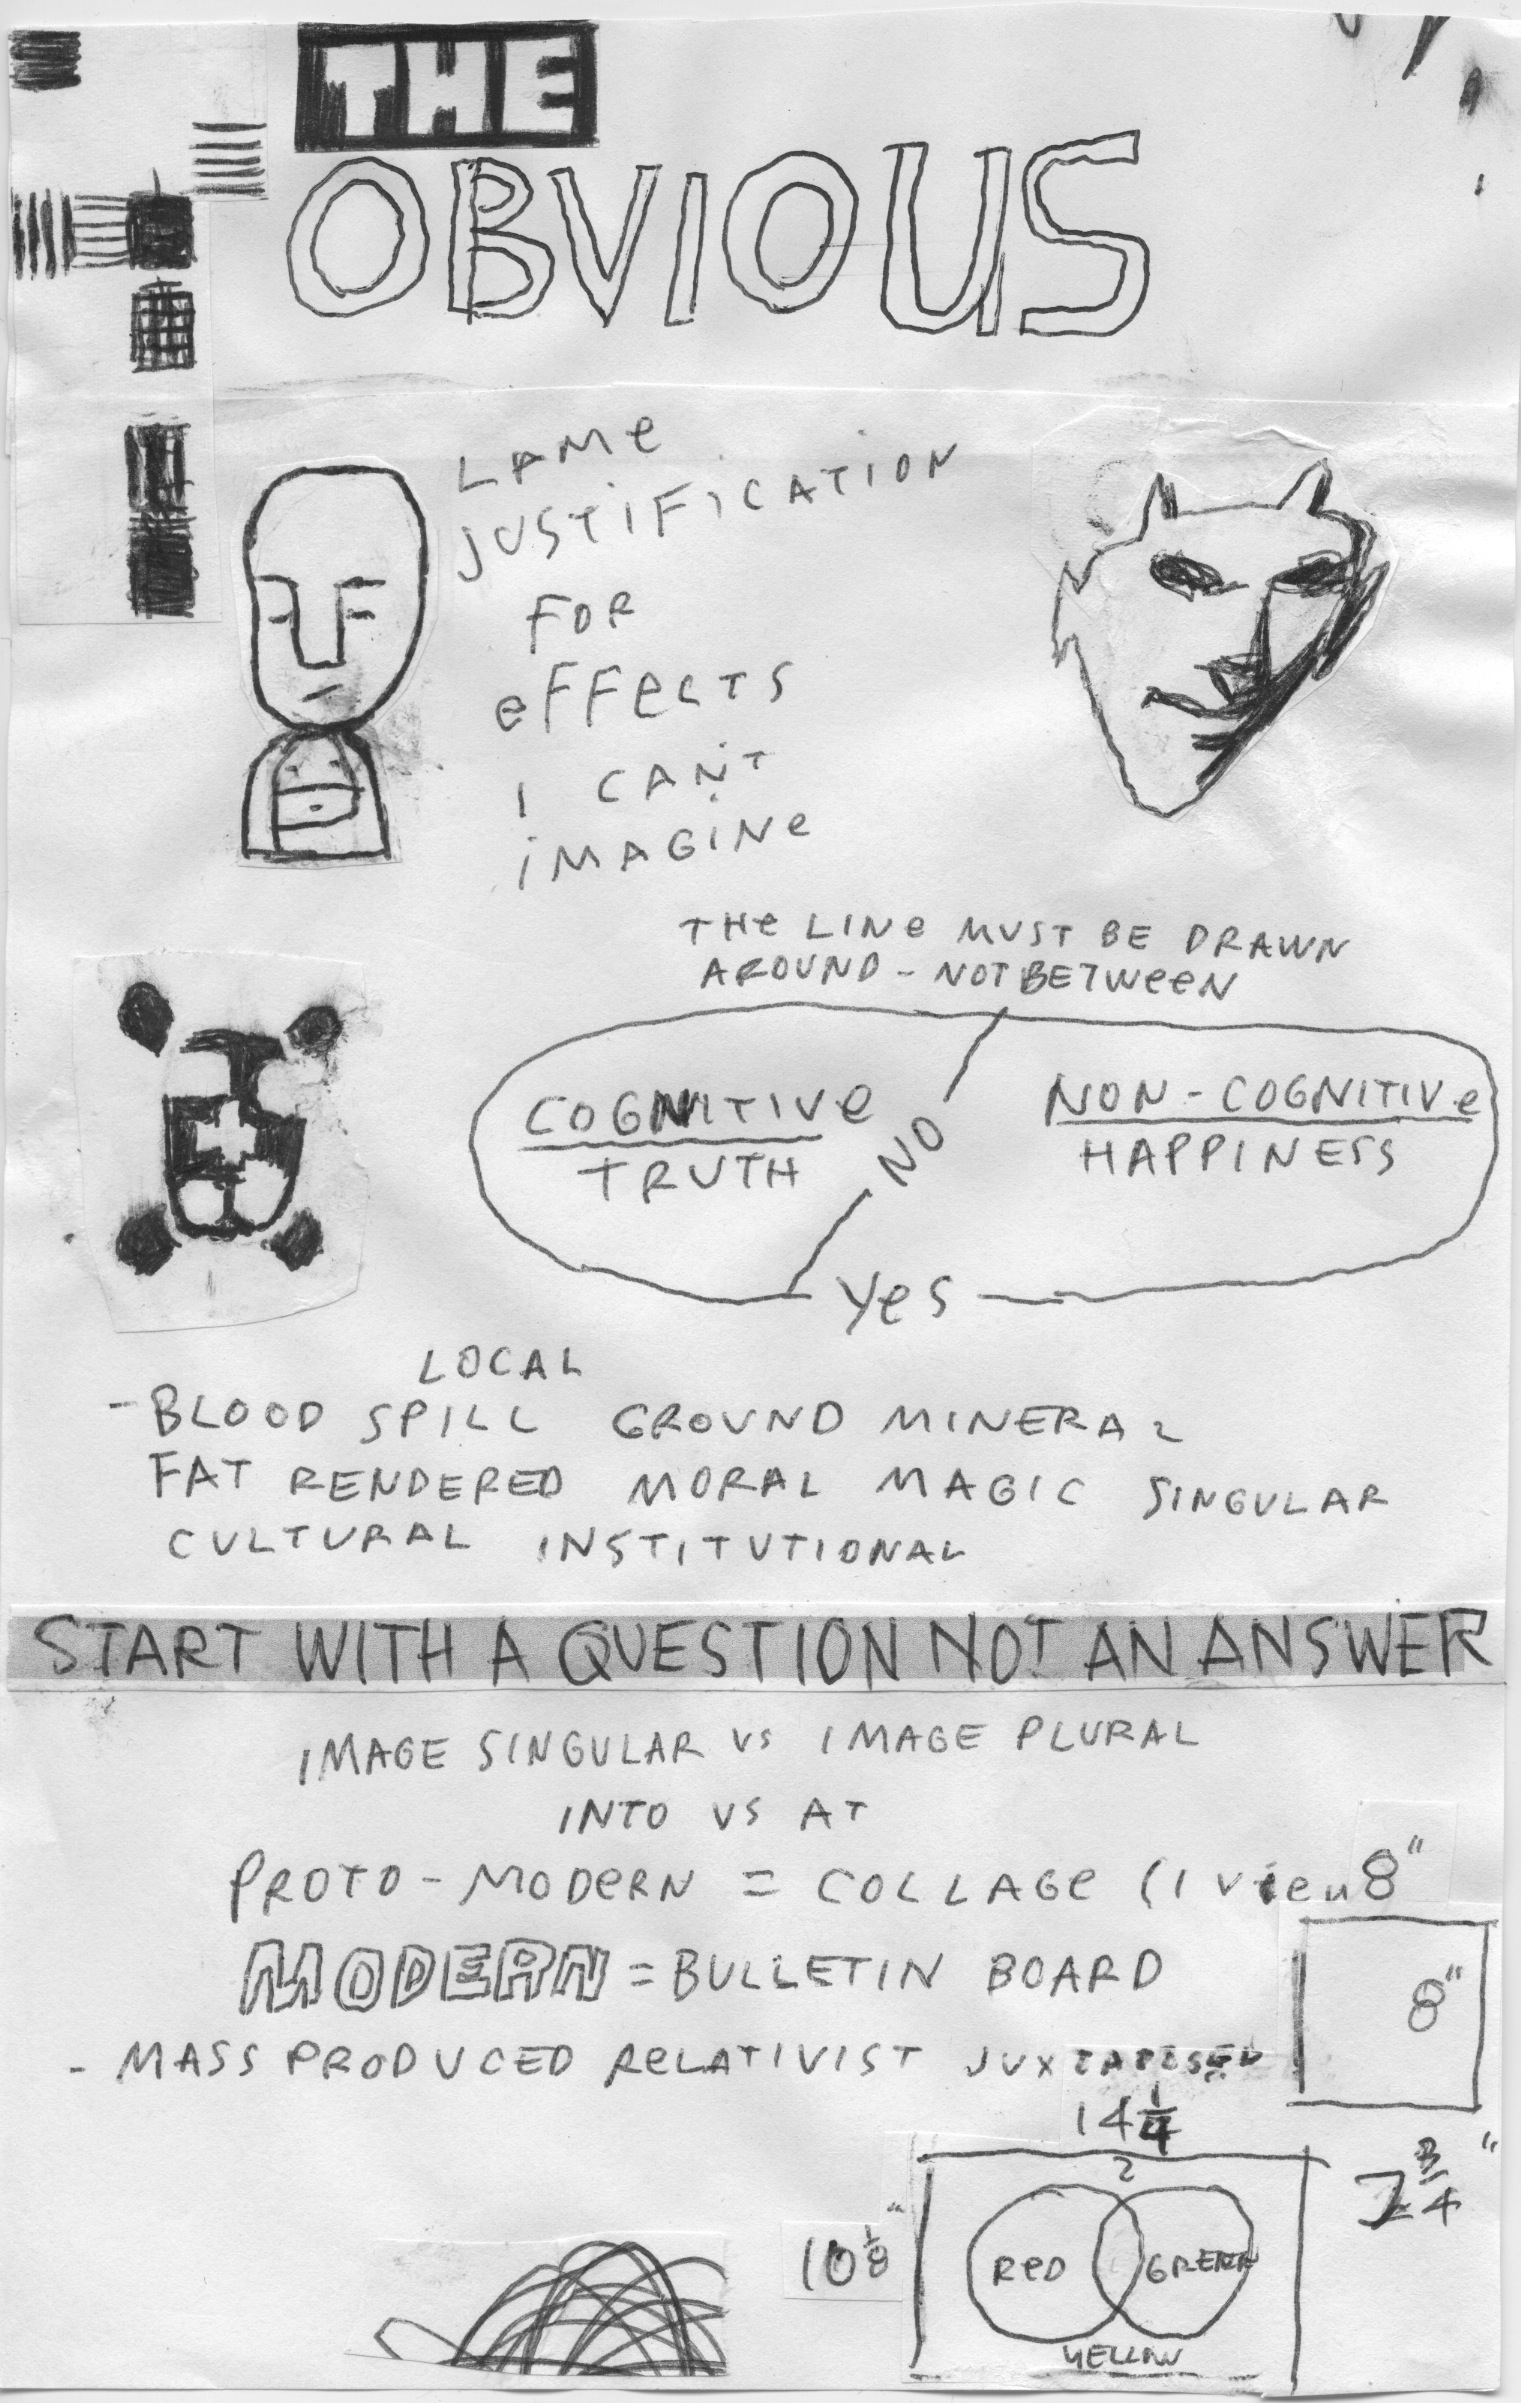 THE
OBVIOUS
LAME
JUSTIFICATION
FOR
EFFECTS
I CAN'T
IMAGINE
THE LINE MUST BE DRAWN
AROUND - NOT BETWEEN
COGNITIVE
TRUTH
NO
NON-COGNITIVE
HAPPINESS
Yes
LOCAL
- BLOOD SPILL GROUND MINERAL
FAT RENDERED MORAL MAGIC SINGULAR
CULTURAL INSTITUTIONAL
START WITH A QUESTION NOT AN ANSWER
IMAGE SINGULAR VS IMAGE PLURAL
INTO VS AT
PROTO-MODERN = COLLAGE (1 view
8"
MODERN = BULLETIN BOARD
8"
- MASS PRODUCED RELATIVIST JUXTAPOSED
14 1/4
2
3/4 "
10 1/8 "
RED
GREEN
YELLOW